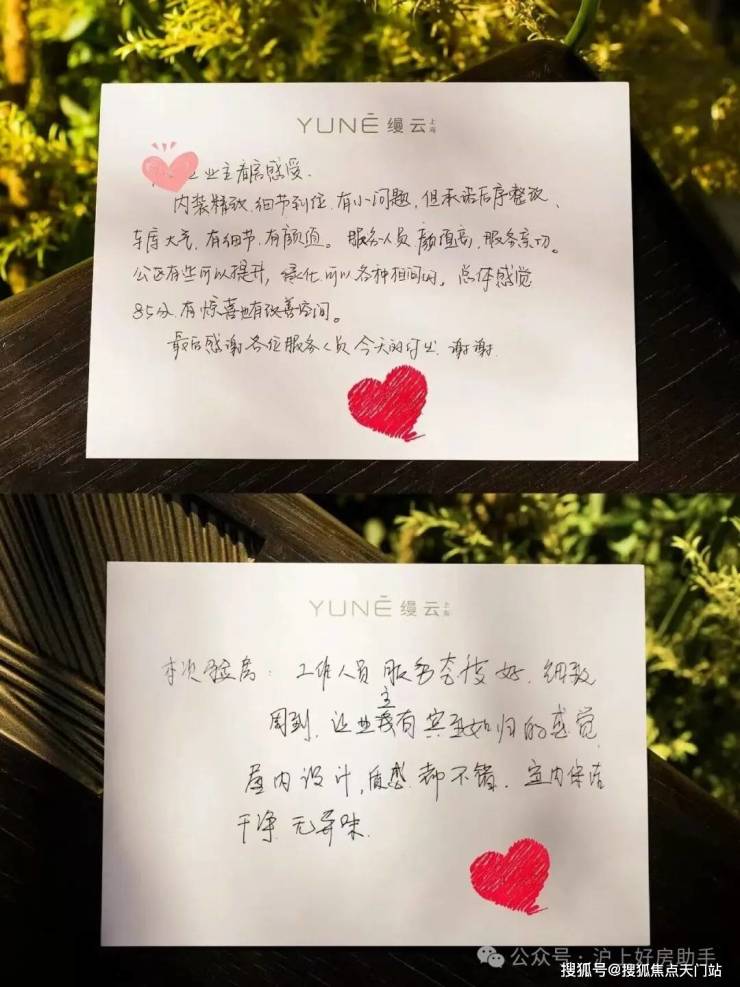 YUNĒ 缦云 上海
业主看房感受.
内装精致,细节到位,有小问题,但承诺后序整改、
车库大气,有细节,有颜值。服务人员颜值高,服务亲切。
公区有些可以提升,绿化可以各种相间的,总体感觉
85分,有惊喜也有改善空间。
最后感谢各位服务人员今天的付出,谢谢.
YUNĒ 缦云 上海
本次验房:工作人员服务态度好.细致
周到,让业主有宾至如归的感觉
屋内设计,质感都不错.室内保洁
干净 无异味.
公众号·沪上好房助手
搜狐号@搜狐焦点天门站